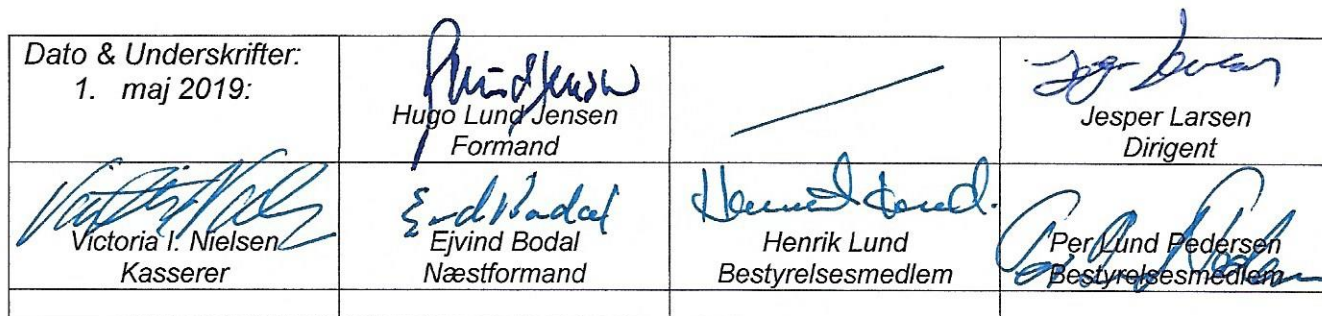 Dato & Underskrifter:
1. maj 2019:
Hugo Lund Jensen
Formand
Jesper Larsen
Dirigent
Victoria I. Nielsen
Kasserer
Ejvind Bodal
Næstformand
Henrik Lund
Bestyrelsesmedlem
Per Lund Pedersen
Bestyrelsesmedlem